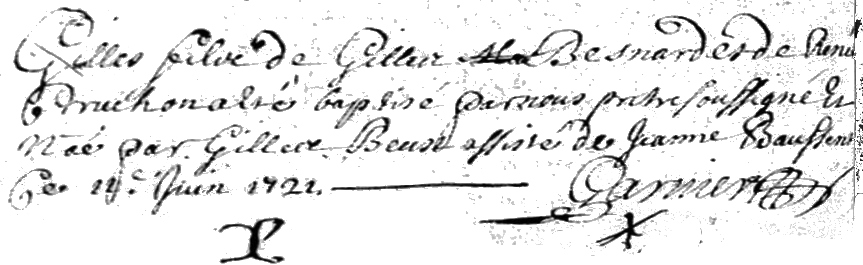 Gilles fils de Gilles Besnard et de René
Truchon a été baptisé par nous prêtre soussigné et
Nômé par Gilles Beus assisté de Jeanne
Ce Juin 1721.
Garnier